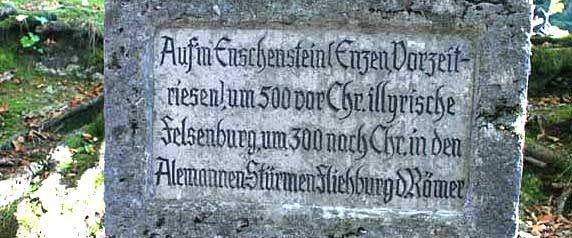 Aufm Enschenstein (Enzen Vorzeit-
riesen), um 500 vor Chr. illyrische
Felsenburg, um 300 nach Chr. in den
Alemannen Stürmen Fliehburg d Römer